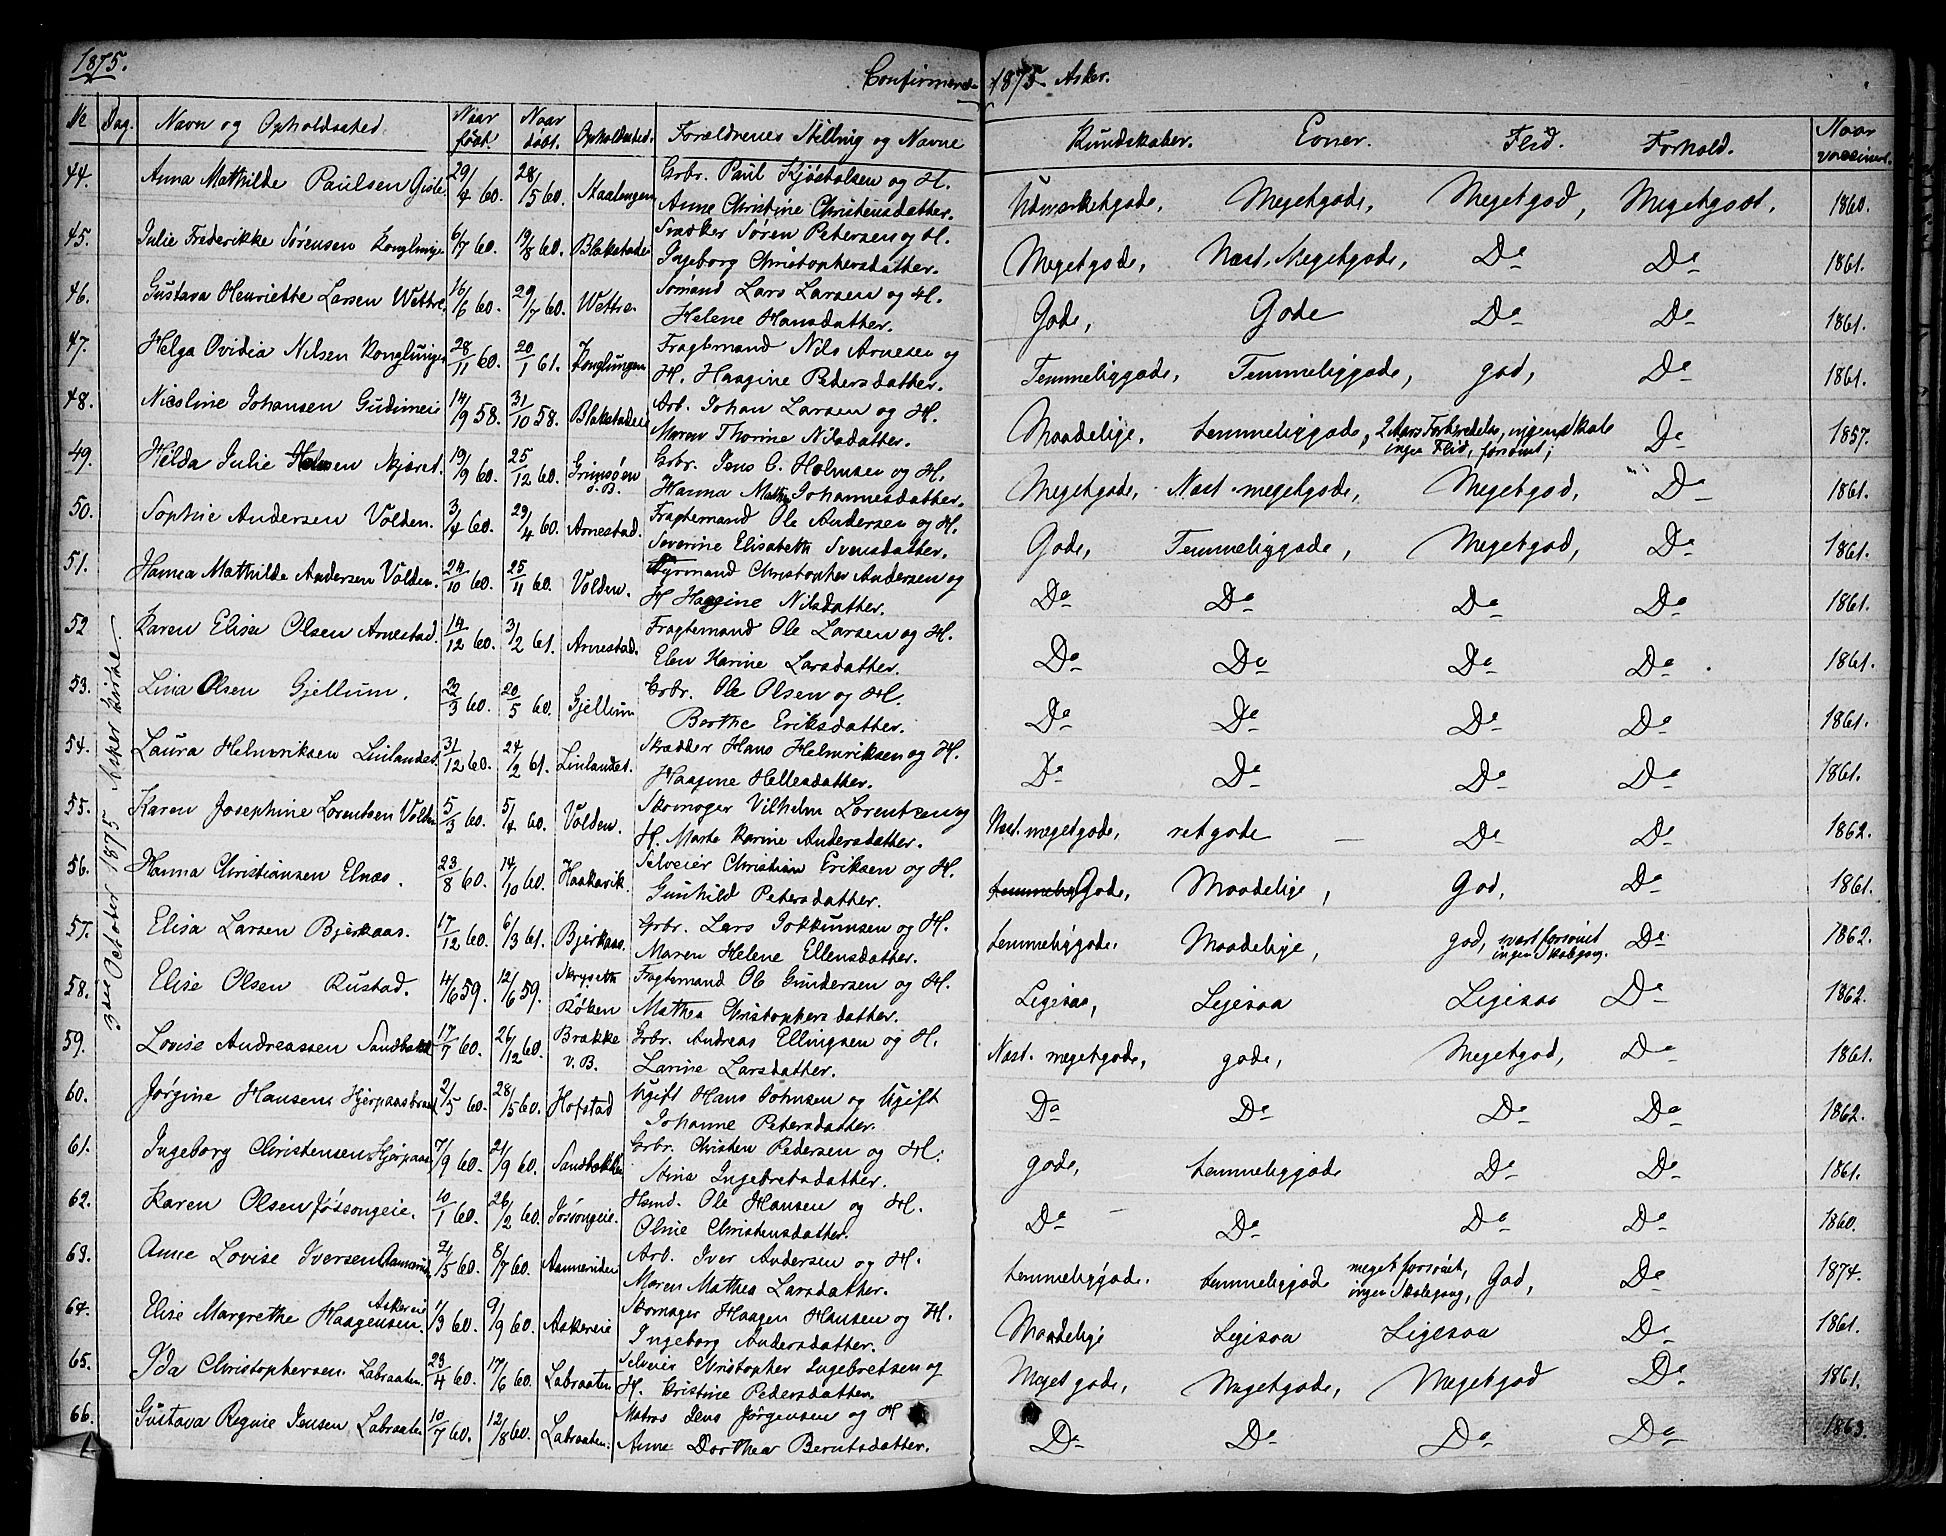 1875.
Confirmerede 1875 Asker.
No Dag. Navn og Opholdssted Naar født. Naar døbt. Opholdssted. Forældrenes Stilling og Navne Kundskaber. Evner. Flid. Forhold. Naar vaccineret.
3die October 1875 Asker Kirke.
44. Anna Mathilde Paulsen Gisle 29/4 60. 28/5 60. Gbr. Paul Kjøstolsen og H. Udmærketgode, Megetgode, Megetgod, Megetgodt. 1860.
Anne Christine Christensdatter.
45. Julie Frederikke Sørensen Konglunge 6/7 60. 19/8 60. Blakstadeie Snedker Søren Petersen og H. Megetgode, Næst. Megetgode, Do Do 1861.
Ingeborg Christophersdatter.
46. Gustava Henriette Larsen Wettre. 16/6 60. 29/7 60. Wettre. Sømand Lars Larsen og H. Gode, Gode Do Do 1861.
Helene Hansdatter.
47. Helga Ovidia Nilsen Konglungen 28/11 60. 20/1 61. Konglungen Fragtemand Nils Arnesen og Temmeliggode, Temmeliggode, god, Do 1861.
H. Haagine Pedersdatter.
48. Nicoline Johansen Gudimeie 14/9 58. 31/10 58. Blakstadeie Arb. Johan Larsen og H. Maadelige, temmeliggode, 2 Aars Forberedelse, ingen Skole Do 1857.
ingen Flid, forsømt;
Maren Thorine Nilsdatter.
49. Hilda Julie Holmsen Njøret. 19/9 60. 25/12 60. Grimsøen Gbr. Jens C. Holmsen og H. Megetgode, Næst megetgode, Megetgod, Do 1861.
Hanna Mathea Johannesdatter.
50. Sophie Andersen Volden. 3/4 60. 29/4 60. Arnestad. Fragtemand Ole Andersen og H. Gode, Temmeliggode, Megetgod, Do 1861.
Severine Elisabeth Svensdatter.
51. Hanna Mathilde Andersen Volden. 24/10 60. 25/11 60. Volden. Styrmand Christopher Andersen og Do Do Do Do 1861.
H Haagine Nilsdatter.
52 Karen Elisa Olsen Arnestad. 14/12 60. 3/2 61. Arnestad. Fragtemand Ole Larsen og H. Do Do Do Do 1861.
Elen Karine Larsdatter.
53. Lina Olsen Gjellum. 22/3 60. 20/5 60. Gjellum Gbr. Ole Olsen og H. Do Do Do Do 1861.
Berthe Eriksdatter.
54. Laura Helmriksen Linlandet. 31/12 60. 24/2 61. Linlandet. Skrædder Hans Helmriksen og H. Do Do Do Do 1861.
Haagine Hellesdatter.
55. Karen Josephine Lorentsen Volden 5/3 60. 5/4 60. Volden. Skomager Vilhelm Lorentzen og Næst. megetgode, retgode Do Do 1862.
H. Marte Karine Andersdatter.
56. Hanna Christiansen Elnæs. 23/8 60. 14/10 60. Haakavik. Selveier Christian Eriksen og H. Gode, Maadelige, God, Do 1861.
Gunhild Petersdatter.
57. Elisa Larsen Bjerkaas. 17/12 60. 6/3 61. Bjerkaas. Gbr. Lars Jokkumsen og H. temmeliggode. Maadelige, god, svært forsømt Do 1862.
ingen Skolegang.
Maren Helene Ellensdatter.
58. Elise Olsen Rustad. 4/6 59. 12/6 59. Skryseth Fragtemand Ole Gundersen og H. Ligesaa, Ligesaa Ligesaa Do 1862.
Røken Mathea Christophersdatter.
59. Lovise Andreassen Sandbakk 17/7 60. 26/12 60. Brække Gbr. Andreas Ellingsen og H. Næst. megetgode, gode, Megetgod, Do 1861.
v. B. Larine Larsdatter.
60. Jørgine Hansen Hjerpaasbraat 2/5 60. 28/5 60. Hofstad Ugift Hans Johnsen og Ugift Do Do Do Do 1862.
Johanne Petersdatter.
61. Ingeborg Christensen Hjerpaas 7/9 60. 21/9 60. Sandbakken Gbr. Christen Pedersen og H. gode, temmeliggode Do Do 1861.
Stina Ingebretsdatter.
62. Karen Olsen Jøssongeie. 10/1 60. 26/2 60. Jøssongeie. Hsmd. Ole Hansen og H. Do Do Do Do 1860.
Oline Christensdatter.
63. Anne Lovise Iversen Aannerud 2/5 60. 8/7 60. Aannerudeie Arb. Iver Andersen og H. temmeliggode. temmeliggode meget forsømt, God, Do 1874.
ingen Skolegang,
Maren Mathea Larsdatter.
64. Elise Margrethe Haagensen. Askereie 1/3 60. 9/9 60. Askereie Skomager Haagen Hansen og H. Maadelige Ligesaa Ligesaa Do 1861.
Ingeborg Andersdatter.
65. Ida Christophersen. Labraaten. 23/4 60. 17/6 60. Labraaten Selveier Christopher Ingebretsen og Meget gode, Megetgode, Megetgod Do 1861.
H. Cristine Pedersdatter.
66. Gustava Regine Jensen Labraaten 10/7 60. 12/8 60. Labraaten. Matros Jens Jørgensen og H Do Do Do Do 1863.
Anne Dorthea Berntsdatter.